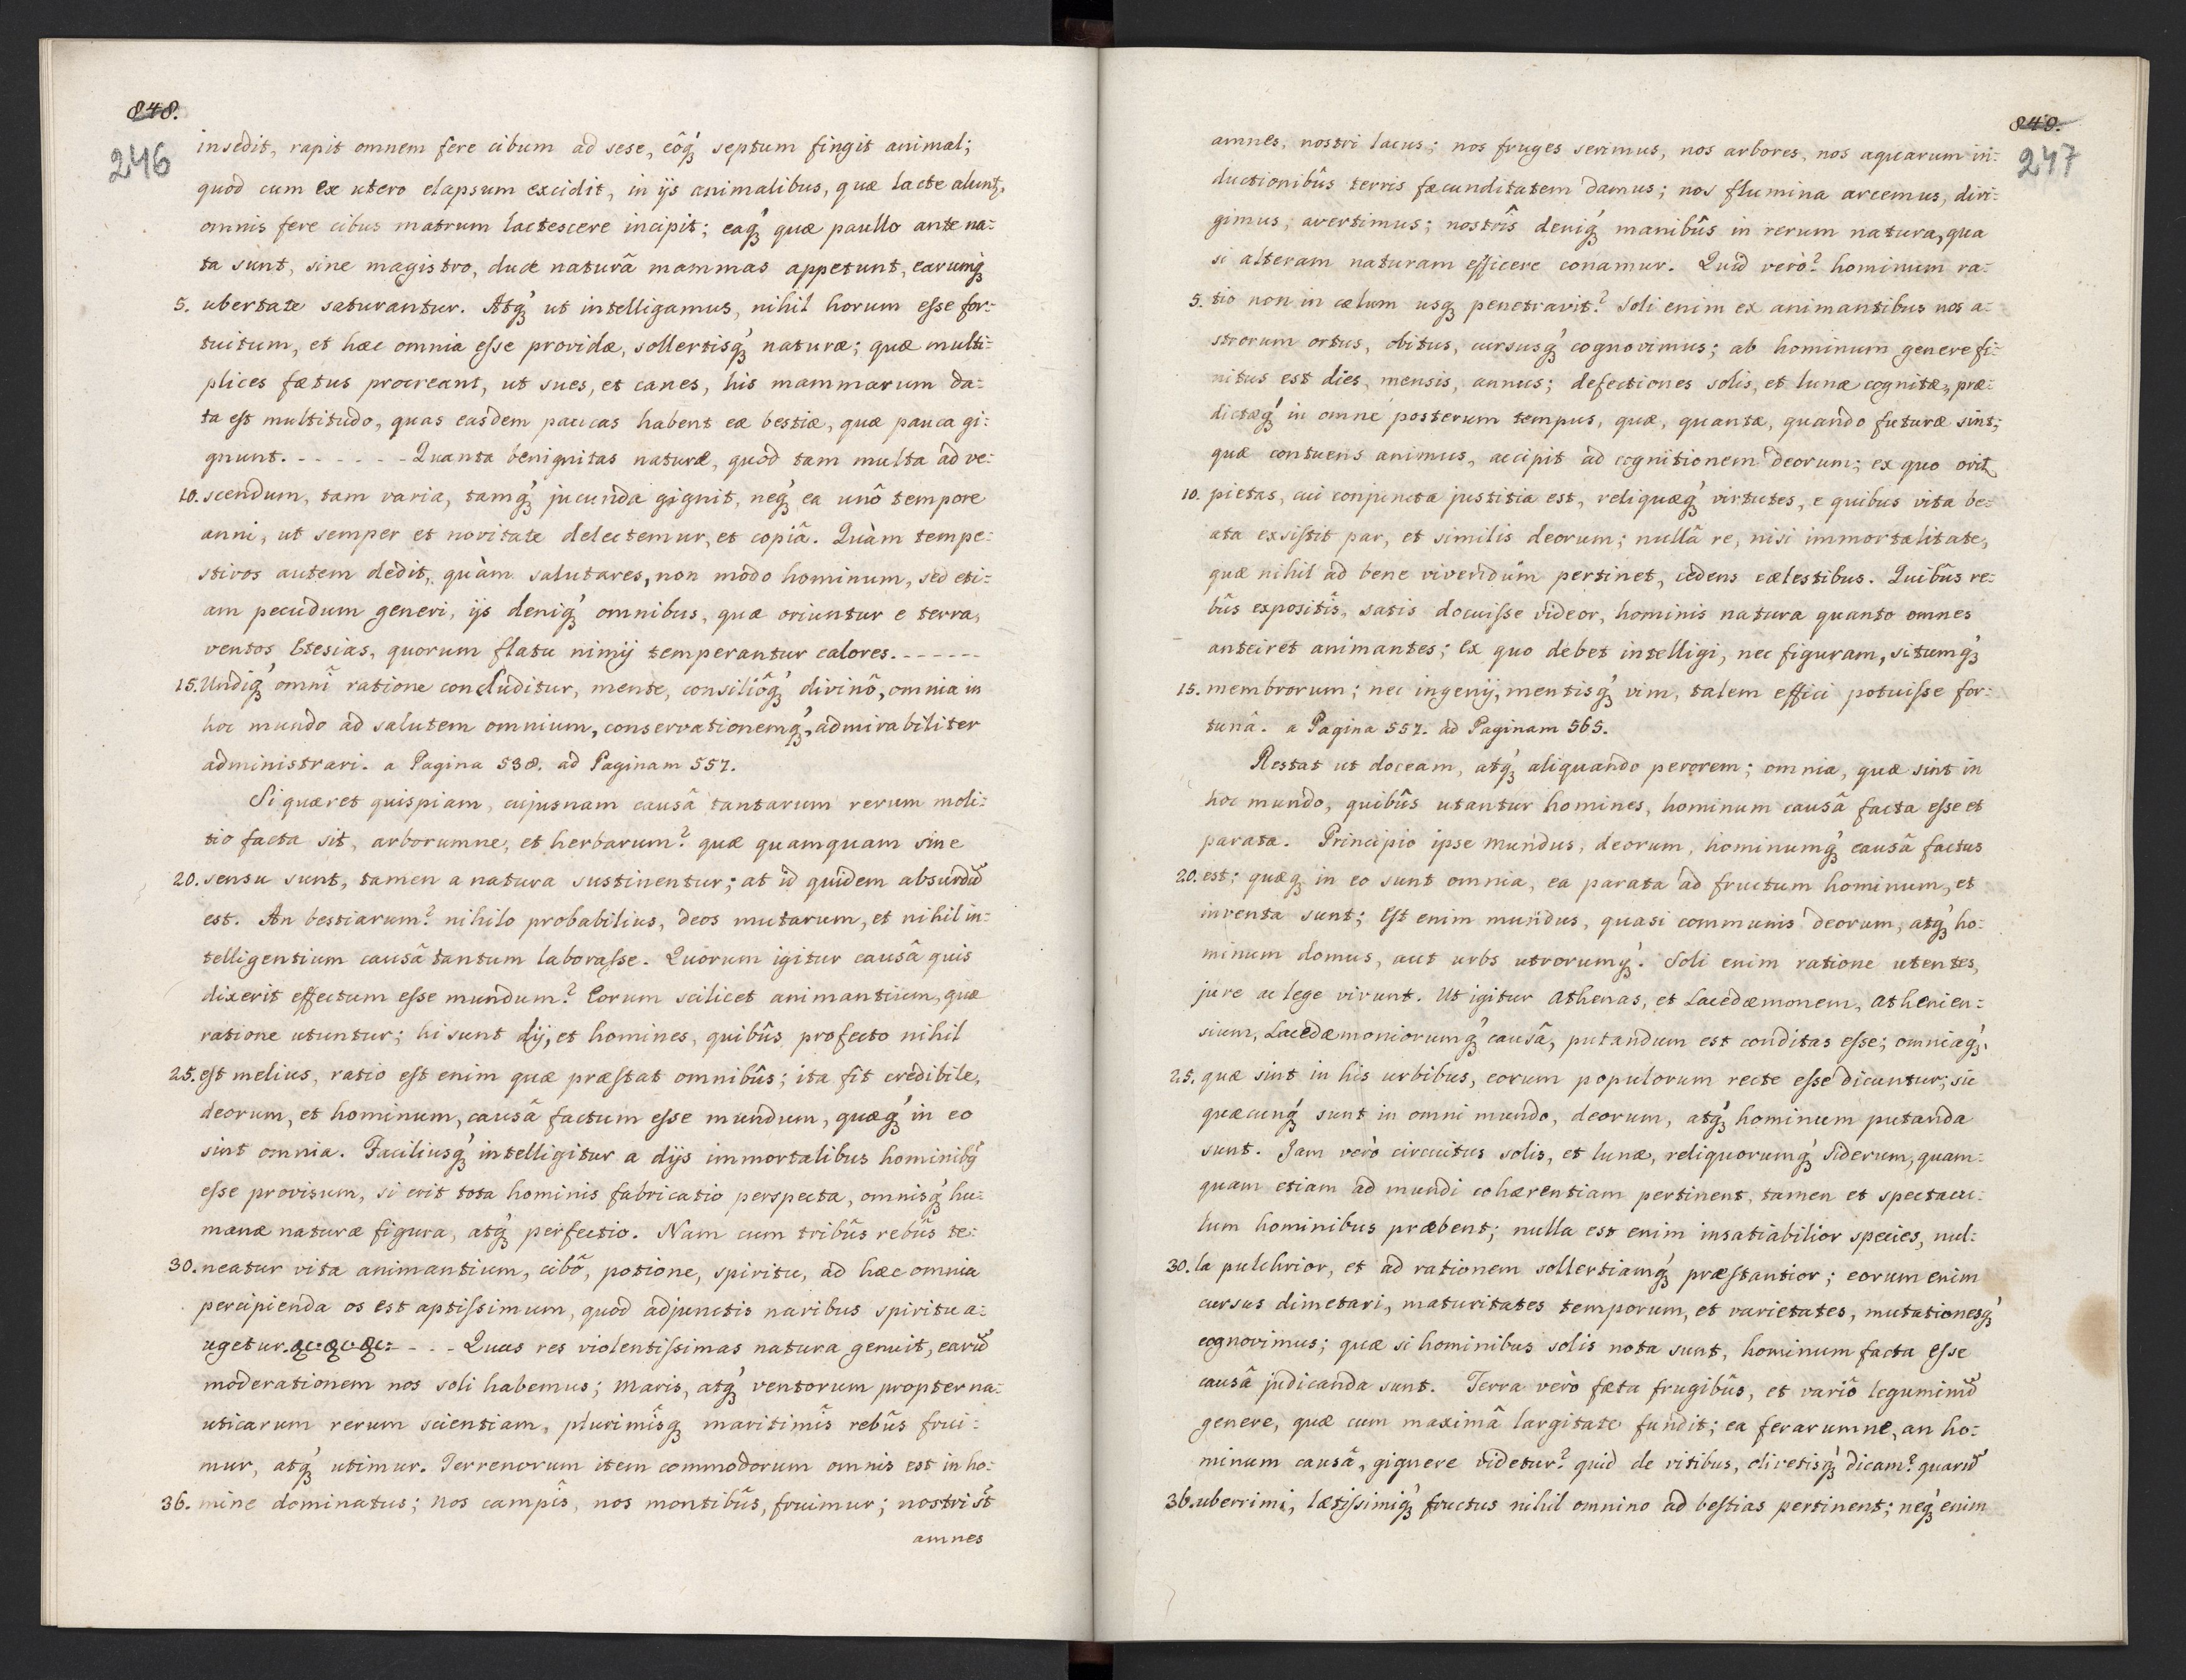 848.
246
insedit, rapit omnem fere cibum ad sese, eôq́ꝫ septum fingit animal;
quod cum ex utero elapsum excidit, in ijs animalibus, quæ lacte alunt,
omnis fere cibus matrum lactescere incipit; eaq́ꝫ quæ paullo ante na:
ta sunt, sine magistro, duce naturâ mammas appetunt, earumq́ꝫ
5. ubertate saturantur. Atq́ꝫ ut intelligamus, nihil horum eſse for:
tuitum, et hæc omnia eſse providæ, sollertisq́ꝫ naturæ; quæ multi:
plices fætus procreant, ut sues, et canes, his mammarum da:
ta eſt multitudo, quas easdem paucas habent eæ bestiæ, quæ pauca gi:
gnunt. - - - - - - Quanta benignitas naturæ, quod tam multa ad ve:
10. scendum, tam varia, tamq́ꝫ jucunda gignit, neq́ꝫ ea unô tempore
anni, ut semper et novitate delectemur, et copiâ. Quàm tempe:
stivos autem dedit, quàm salutares, non modo hominum, sed eti:
am pecudum generi, ijs deniq́ꝫ omnibus, quæ oriuntur e terra,
ventos Etesias, quorum flatu nimij temperantur calores. - - - - - -
15. Undiq́ꝫ omnî ratione concluditur, mente, consiliôq́ꝫ divinô, omnia in
hoc mundo ad salutem omnium, conservationemq́ꝫ, admirabiliter
administrari. a Pagina 538. ad Paginam 557.
Si quæret quispiam, cujusnam causâ tantarum rerum moli:
tio facta sit, arborumne, et herbarum? quæ quamquam sine
20. sensu sunt, tamen a natura sustinentur; at id quidem absurdũ
est. An bestiarum? nihilo probabilius, deos mutarum, et nihil in:
telligentium causâ tantum laboraſse. Quorum igitur causâ quis
dixerit effectum eſse mundum? Eorum scilicet animantium, quæ
ratione utuntur; hi sunt dij, et homines, quibûs profecto nihil
25. eſt melius, ratio eſt enim quæ præſtat omnibûs; ita fit credibile,
deorum, et hominum, causâ factum eſse mundum, quæq́ꝫ in eo
sint omnia. Faciliusq́ꝫ intelligitur a dijs immortalibus hominibq́ꝫ
eſse provisum, si erit tota hominis fabricatio perspecta, omnisq́ꝫ hu:
manæ naturæ figura, atq́ꝫ perfectio. Nam cum tribûs rebûs te:
30. neatur vita animantium, cibô, potione, spiritu, ad hæc omnia
percipienda os est aptiſsimum, quod adjunctis naribus spiritu a:
ugetur. &c: &c: &c: - - - Quas res violentiſsimas natura genuit, earũ
moderationem nos soli habemus; maris, atq́ꝫ ventorum propter na:
uticarum rerum scientiam, plurimîsqꝫ maritimîs rebûs frui:
mur, atq́ꝫ utimur. Terrenorum item commodorum omnis est in ho:
36. mine dominatus; nos campîs, nos montibûs, fruimur; nostri st̃
amnes
849.
247
amnes, nostri lacus; nos fruges serimus, nos arbores, nos aquarum in:
ductionibûs terris fæcunditatem damus; nos flumina arcemus, diri:
gimus, avertimus; nostrîs deniq́ꝫ manibûs in rerum natura, qua
si alteram naturam efficere conamur. Quid verò? hominum ra:
5. tio non in cælum usqꝫ penetravit? Soli enim ex animantibus nos a:
strorum ortus, obitus, cursusq́ꝫ cognovimus; ab hominum genere fi:
nitus est dies, mensis, annus; defectiones solis, et lunæ cognitæ, præ:
dictæq́ꝫ in omne posterum tempus, quæ, quantæ, quando futuræ sint;
quæ contuens animus, accipit ad cognitionem deorum; ex quo orit
10. pietas, cui conjuncta justitia est, reliquæq́ꝫ virtutes, e quibus vita be:
ata exsiſtit par, et similis deorum; nullâ re, nisi immortalitate,
quæ nihil ad bene vivendum pertinet, cedens cælestibus. Quibûs re:
bûs expositîs, satis docuiſse videor, hominis natura quanto omnes
anteiret animantes; ex quo debet intelligi, nec figuram, situmq́ꝫ
15. membrorum; nec ingenij, mentisq́ꝫ vim, talem effici potuiſse for:
tunâ. a Pagina 557. ad Paginam 565.
Restat ut doceam, atq́ꝫ aliquando perorem; omnia, quæ sint in
hoc mundo, quibûs utantur homines, hominum causâ facta eſse et
parata. Principio ipse mundus, deorum, hominumq́ꝫ causâ factus
20. est; quæqꝫ in eo sunt omnia, ea parata ad fructum hominum, et
inventa sunt; Eſt enim mundus, quasi communis deorum, atq́ꝫ ho:
minum domus, aut urbs utrorumq́ꝫ. Soli enim ratione utentes,
jure ac lege vivunt. Ut igitur Athenas, et Lacedæmonem, Athenien:
sium, Lacedæmoniorumq́ꝫ causâ, putandum est conditas eſse; omniaq́ꝫ,
25. quæ sint in his urbibus, eorum populorum recte eſse dicuntur; sic
quæcunq́ꝫ sunt in omni mundo, deorum, atq́ꝫ hominum putanda
sunt. Jam verò circuitus solis, et lunæ, reliquorumq́ꝫ siderum, quam:
quam etiam ad mundi cohærentiam pertinent, tamen et spectacu:
lum hominibus præbent; nulla est enim insatiabilior species, nul:
30. la pulchrior, et ad rationem sollertiamq́ꝫ præſtantior; eorum enim
cursus dimetari, maturitates temporum, et varietates, mutationesq́ꝫ
cognovimus; quæ si hominibus solis nota sunt, hominum facta eſse
causâ judicanda sunt. Terra verò fæta frugibûs, et variô leguminũ
genere, quæ cum maximâ largitate fundit; ea ferarumne, an ho:
minum causâ, gignere videtur? quid de vitibus, olivetisq́ꝫ dicam? quarũ
36. uberrimi, lætiſsimiq́ꝫ fructus nihil omnino ad beſtias pertinent; neq́ꝫ enim